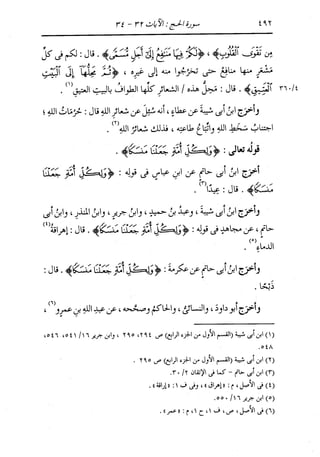 ٤٩٢ سورة الحج : الآيات ٣٢ - ٣٤
مِن تَقْوَى الْقُلُوبِ﴾ ، ﴿لَكُمْ فِيهَا مَنَافِعُ إِلَى أَجَلٍ مُّسَمًّى﴾ . قال : لكم فى كلِّ
مَشْعَرٍ منها منافعُ حتى تَخْرُجوا منه إلى غيرِه ، ﴿ثُمَّ مَحِلُّهَا إِلَى الْبَيْتِ
٣٦٠/٤ الْعَتِيقِ﴾ . قال : مَحِلُّ هذه / الشعائرِ كلِّها الطوافُ بالبيتِ العتيقِ(١) .
وأخرَج ابنُ أبى شيبةَ عن عطاءٍ ، أنه سُئِل عن شعائرِ اللهِ قال : حُرُماتُ اللهِ ؛
اجتنابُ سَخَطِ اللهِ واتِّباعُ طاعتِه ، فذلك شعائرُ اللهِ(٢) .
قولُه تعالى : ﴿وَلِكُلِّ أُمَّةٍ جَعَلْنَا مَنسَكًا﴾ .
أخرَج ابنُ أبى حاتمٍ عن ابنِ عباسٍ فى قولِه : ﴿وَلِكُلِّ أُمَّةٍ جَعَلْنَا
مَنسَكًا﴾ . قال : عِيدًا(٣) .
وأخرَج ابنُ أبى شيبةَ ، وعبدُ بنُ حميدٍ ، وابنُ جريرٍ ، وابنُ المنذرِ ، وابنُ أبى
حاتمٍ ، عن مجاهدٍ فى قولِه : ﴿وَلِكُلِّ أُمَّةٍ جَعَلْنَا مَنسَكًا﴾ . قال : إهراقةُ(٤)
الدماءِ(٥) .
وأخرَج ابنُ أبى حاتمٍ عن عكرمةَ : ﴿وَلِكُلِّ أُمَّةٍ جَعَلْنَا مَنسَكًا﴾ . قال :
ذَبْحًا .
وأخرَج أبو داودَ ، والنسائىُّ ، والحاكمُ وصحَّحه ، عن عبدِ اللهِ بنِ عمرٍو(٦) ،
(١) ابن أبى شيبة (القسم الأول من الجزء الرابع) ص ٢٩٤، ٢٩٥ ، وابن جرير ١٦/ ٥٤١، ٥٤٦،
٥٤٨ .
(٢) ابن أبى شيبة (القسم الأول من الجزء الرابع) ص ٢٩٥ .
(٣) ابن أبى حاتم - كما فى الإتقان ٢/ ٣٠ .
(٤) فى الأصل ، م : «إهراق» ، وفى ف ١ : «إراقة» .
(٥) ابن جرير ١٦/ ٥٥٠ .
(٦) فى الأصل ، ص ، ف ١ ، ح ١ ، م : «عمر» .